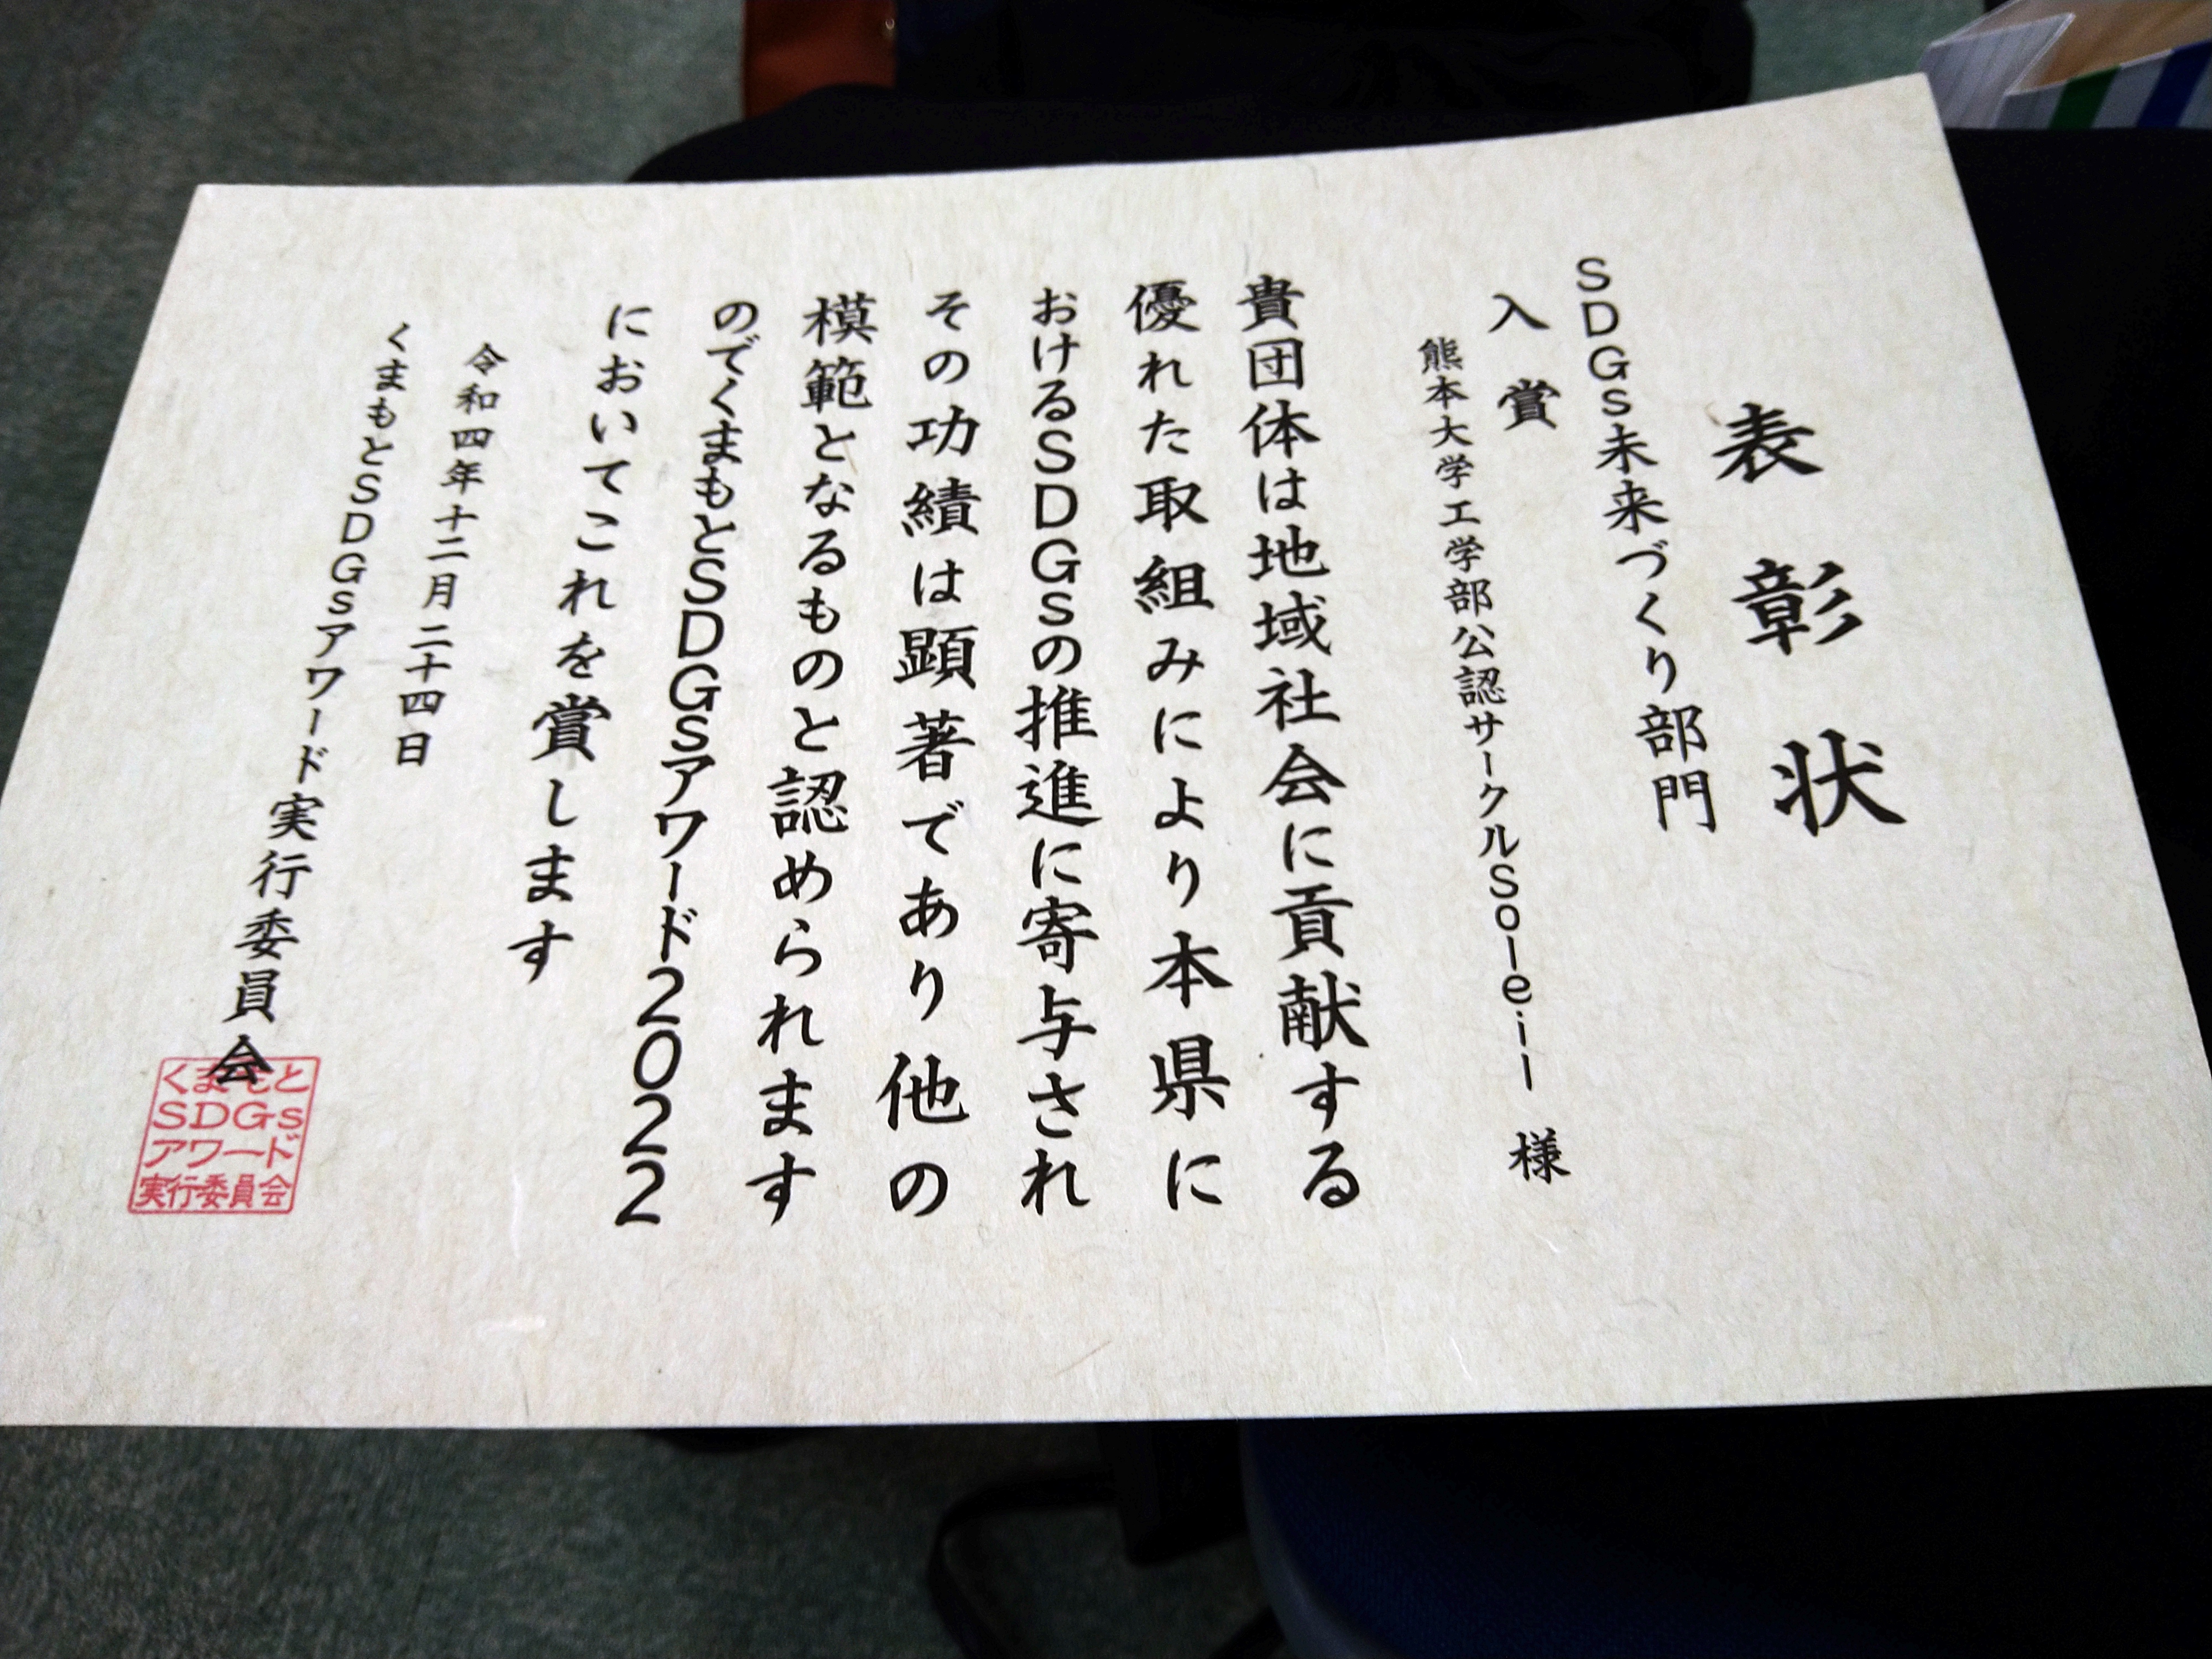 表彰状
SDGs未来づくり部門
入賞
熊本大学工学部公認サークルSoleil 様
貴団体は地域社会に貢献する
優れた取組みにより本県に
おけるSDGsの推進に寄与され
その功績は顕著であり他の
模範となるものと認められます
のでくまもとSDGsアワード2022
においてこれを賞します
令和四年十二月二十四日
くまもとSDGsアワード実行委員会
くまもと
SDGs
アワード
実行委員会